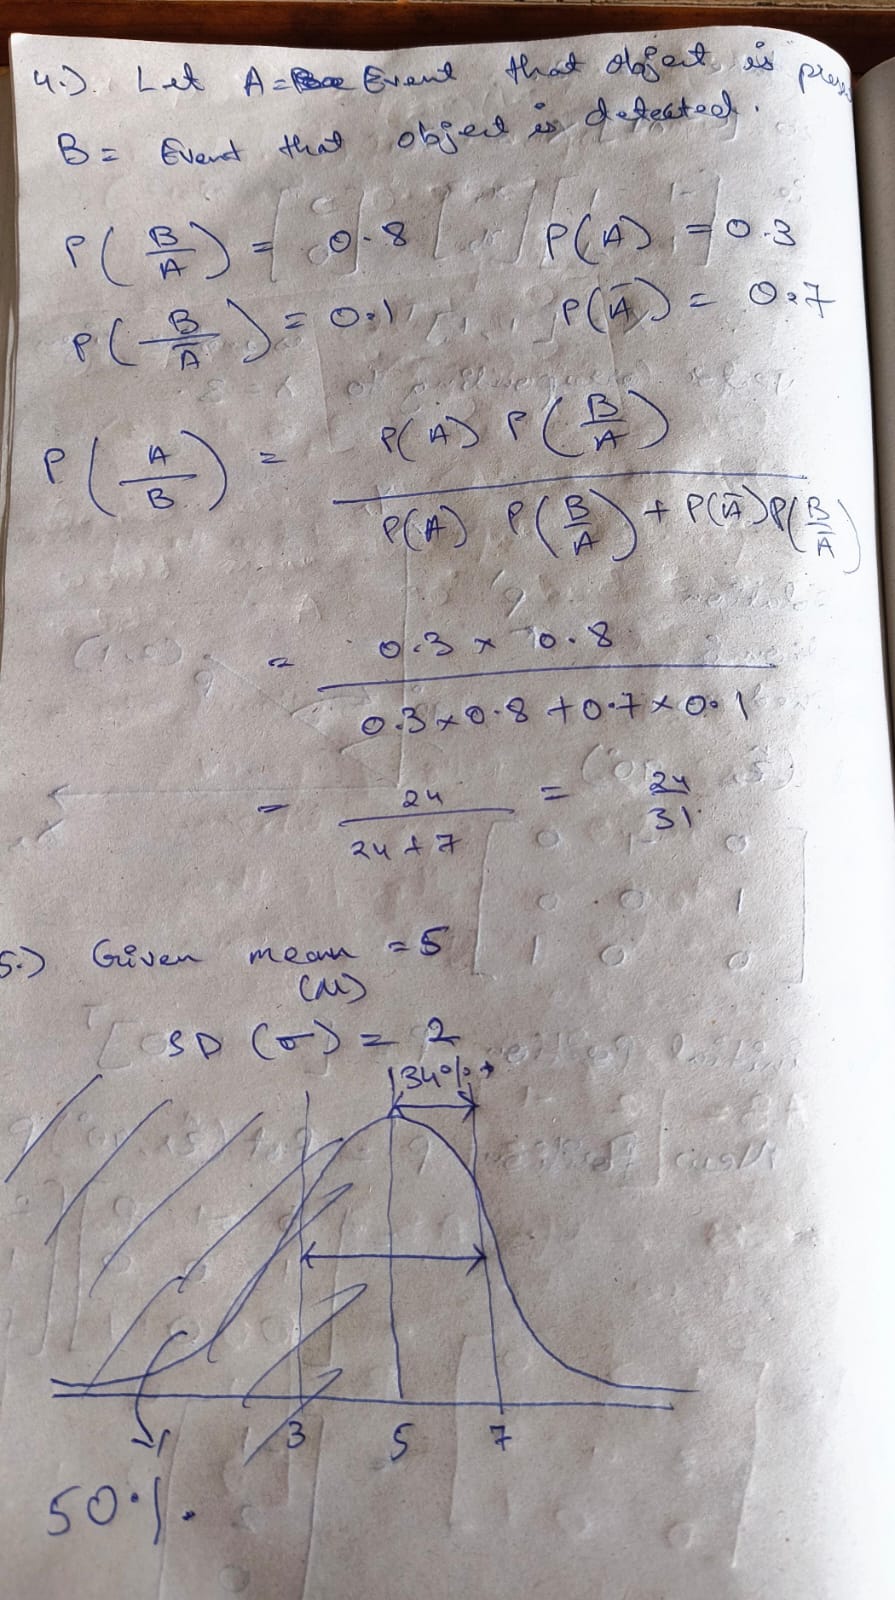 4.) Let A = Event that object is
B = Event that object is detected.
P(B/A) = 0.8 P(A) = 0.3
P(B/Ā) = 0.1 P(Ā) = 0.7
P(A/B) = P(A) P(B/A) / P(A) P(B/A) + P(Ā)P(B/Ā)
= 0.3 x 0.8 / 0.3 x 0.8 + 0.7 x 0.1
= 24 / 24 + 7 = 24/31
5.) Given mean = 5
(μ)
SD (σ) = 2
34%
3 5 7
50%.